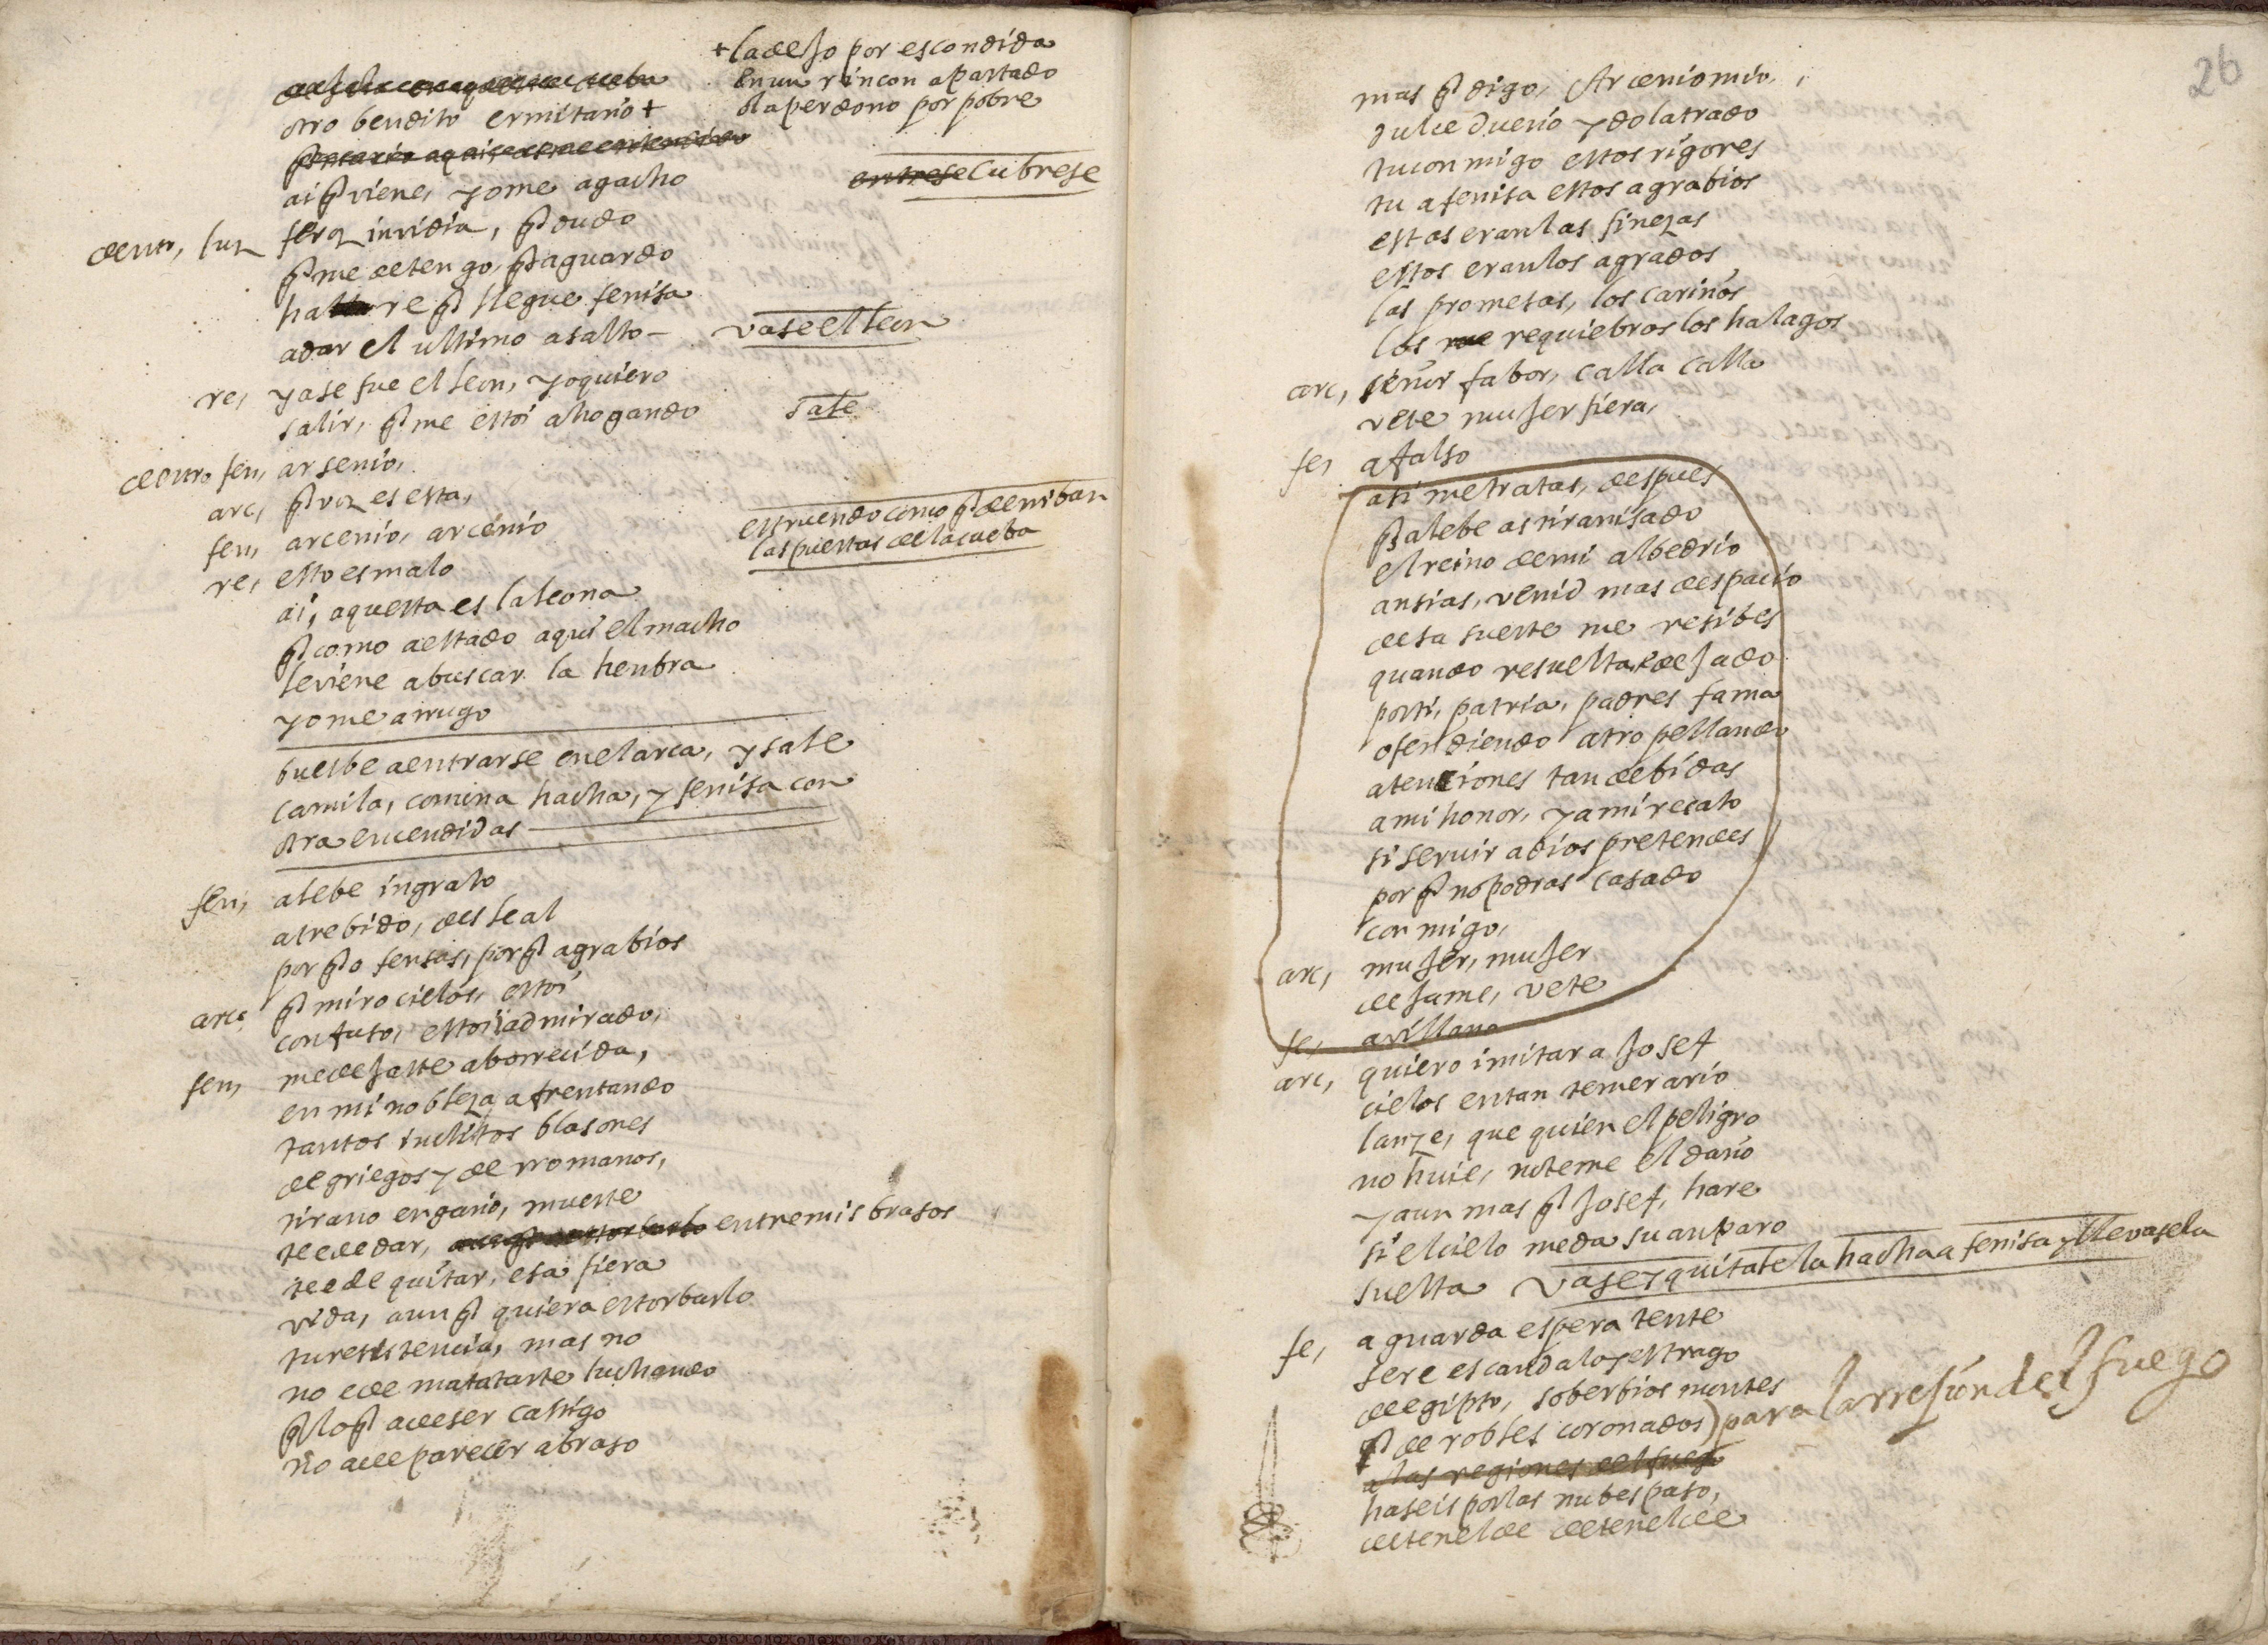 + la dejo por escondida
en un rincon apartado
o la perdono por pobre
otro bendito ermitaño +
ai q̃ viene, yo me agacho
entrese cubrese
dentr, luz feroz invidia, q̃ dudo
q̃ me detengo, q̃ aguardo
hare q̃ llegue fenisa
a dar el ultimo asalto — vase el leon
re, ya se fue el leon, yo quiero
salir, q̃ me estoi ahogando sale
dentro fen, arsenio,
arc, q̃ voz es esta,
fen, arcenio, arcenio
estruendo como q̃ derriban
las puertas de la cueba
re, esto es malo
ai, aquesta es la leona
q̃ como a estado aqui el macho
le viene a buscar la henbra
yo me arrugo
buelbe a entrarse en el arca, y sale
camila, con una hacha, y fenisa con
otra encendidas
fen, alebe ingrato
atrebido, desleal
por q̃ ofensas, por q̃ agrabios
arc, q̃ miro cielos, estoi
confuso, estoi admirado,
fen, me dejaste aborrecida,
en mi nobleza afrentando
tantos inclitos blasones
de griegos y de rromanos,
tirano engaño, muerte
te e de dar, entre mis brasos
te e de quitar, esa fiera
vida, aun q̃ quiera estorbarlo
tu resistencia, mas no
no e de matatarte luchando
q̃ lo q̃ a de ser castigo
no a de parecer abraso
26
mas q̃ digo, Arcenio mio,
dulce dueño ydolatrado
tu conmigo estos rigores
tu a fenisa estos agrabios
estas eran las finezas
estos eran los agrados
las promesas, los cariños
los requiebros los halagos
arc, señor fabor, calla calla
vete mujer fiera,
fe, a falso
asi me tratas, despues
q̃ alebe as tiranisado
el reino de mi albedrio
ansias, venid mas despacio
desa suerte me resibes
quando resuelta, e dejado
por ti, patria, padres fama
ofendiendo atropellando
atenciones tan debidas
a mi honor, y a mi recato
si servir a dios pretendes
por q̃ no podras casado
conmigo,
arc, mujer, mujer
dejame, vete
fe, a villano
arc, quiero imitar a Josef
cielos en tan temerario
lanze, que quien el peligro
no huie, no teme el daño
y aun mas q̃ Josef, hare
si el cielo me da su anparo
suelta vase y quitale la hacha a fenisa y llevasela
fe, aguarda espera tente
sere escandalo y estrago
de egipto, soberbios montes
q̃ de robles coronados) para la rrejion del fuego
a las regiones del fuego
haseis por las nubes paso,
detenelde detenelde